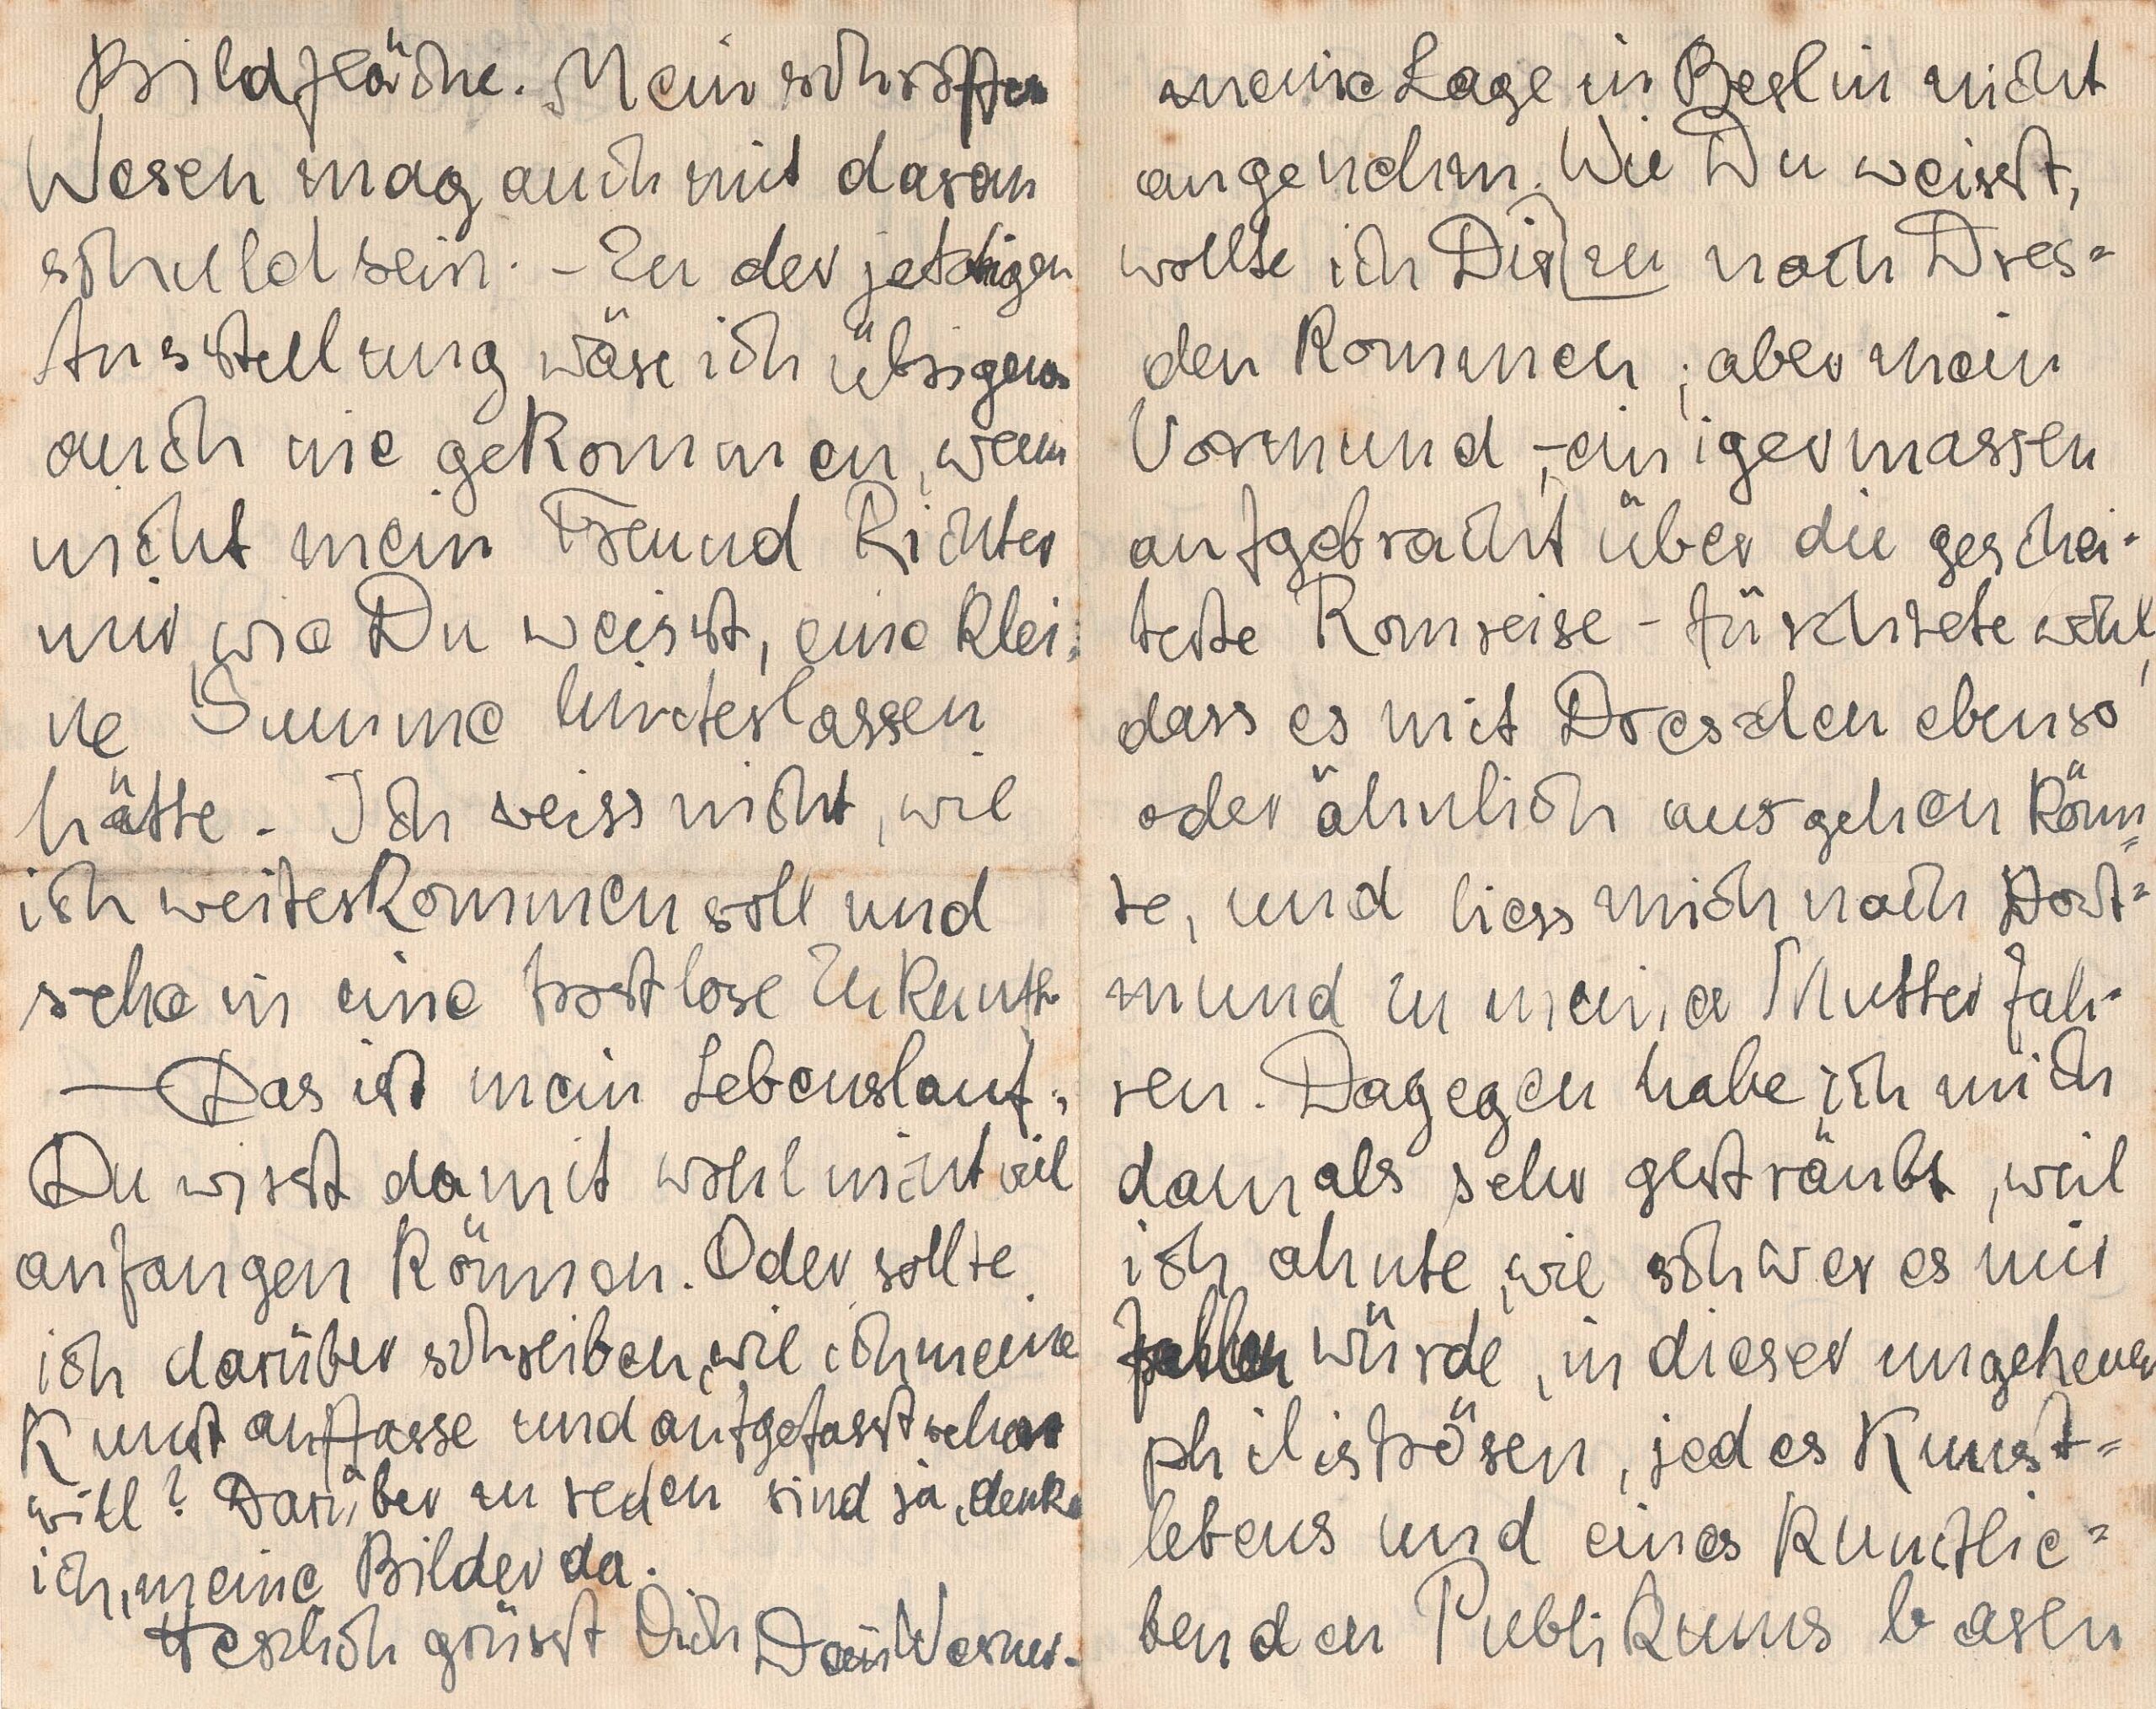 Bildfläche. Mein schroffes
Wesen mag auch mit daran
schuld sein. – Zu der jetzigen
Ausstellung wäre ich übrigens
auch nie gekommen, wenn
nicht mein Freund Richter
mir, wie Du weisst, eine klei-
ne Summe hinterlassen
hätte. Ich weiss nicht, wie
ich weiterkommen soll und
sehe in eine trostlose Zukunft.
— Das ist mein Lebenslauf;
Du wirst damit wohl nicht viel
anfangen können. Oder sollte
ich darüber schreiben, wie ich meine
Kunst auffasse und aufgefasst sehen
will? Darüber zu reden sind ja, denke
ich, meine Bilder da.
Herzlich grüsst Dich Dein Werner.
meine Lage in Berlin nicht
angenehm. Wie Du weisst,
wollte ich Dir zu nach Dres=
den kommen; aber mein
Vormund, – einigermassen
aufgebracht über die geschei-
terte Romreise – fürchtete wohl,
dass es mit Dresden ebenso
oder ähnlich ausgehen könn=
te, und liess mich nach Dort=
mund zu meiner Mutter fah-
ren. Dagegen habe ich mich
damals sehr gesträubt, weil
ich ahnte, wie schwer es mir
fallen würde, in dieser ungeheuer
philiströsen, jedes Kunst=
lebens und eines kunstlie=
benden Publikums baren